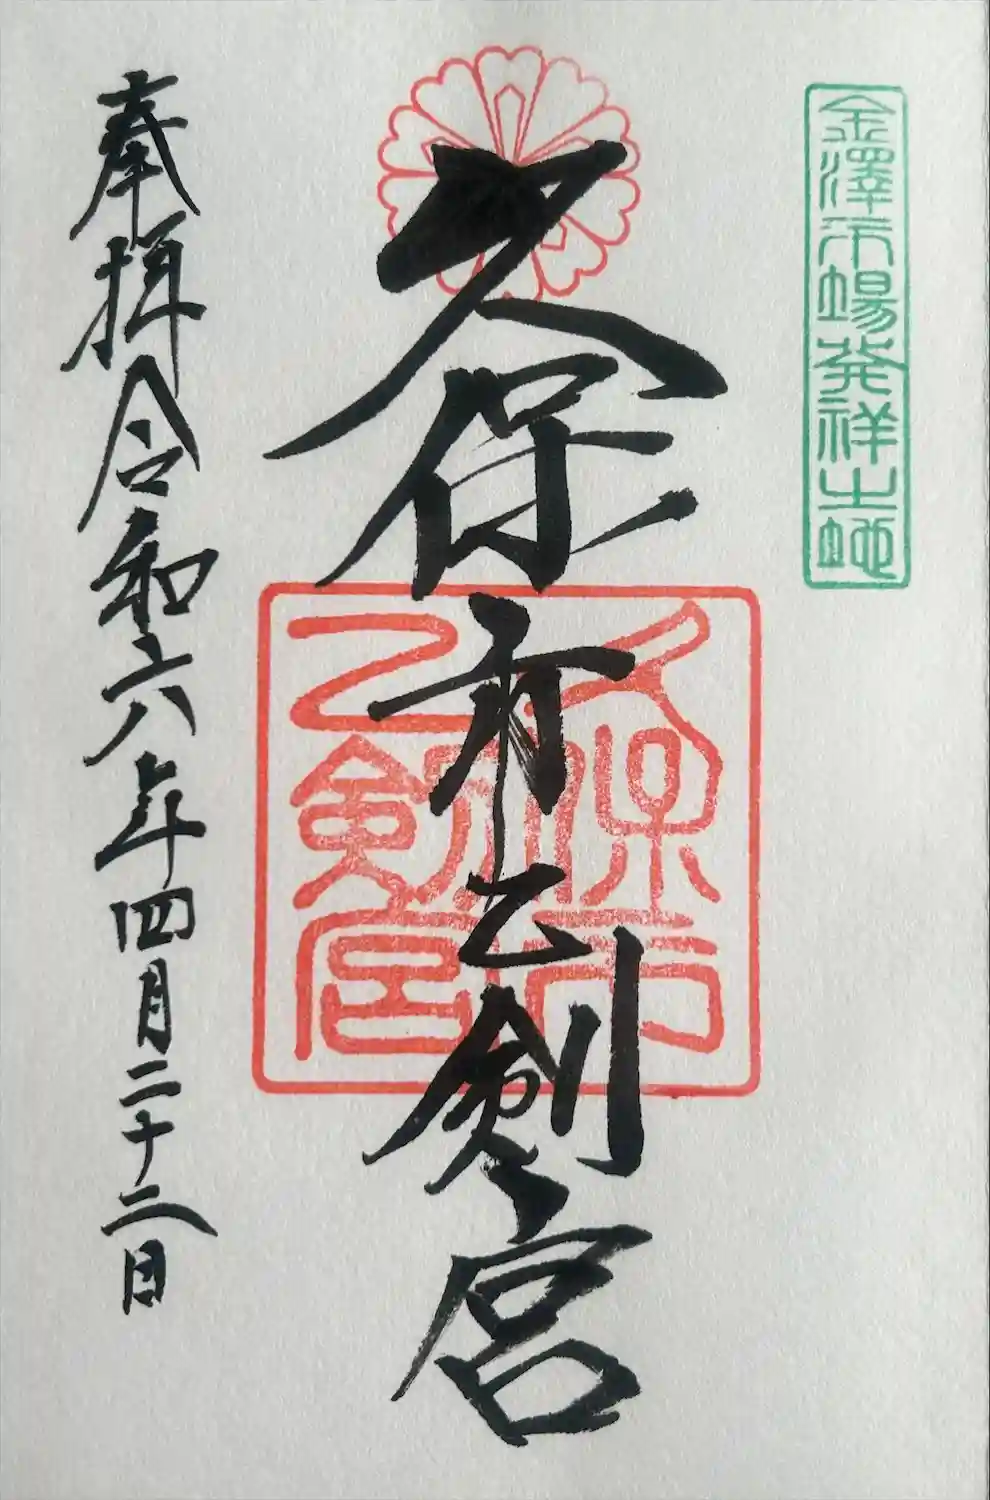 金澤市場発祥之地
久保市乙剣宮
久保市
乙剣宮
奉拝令和六年四月二十二日